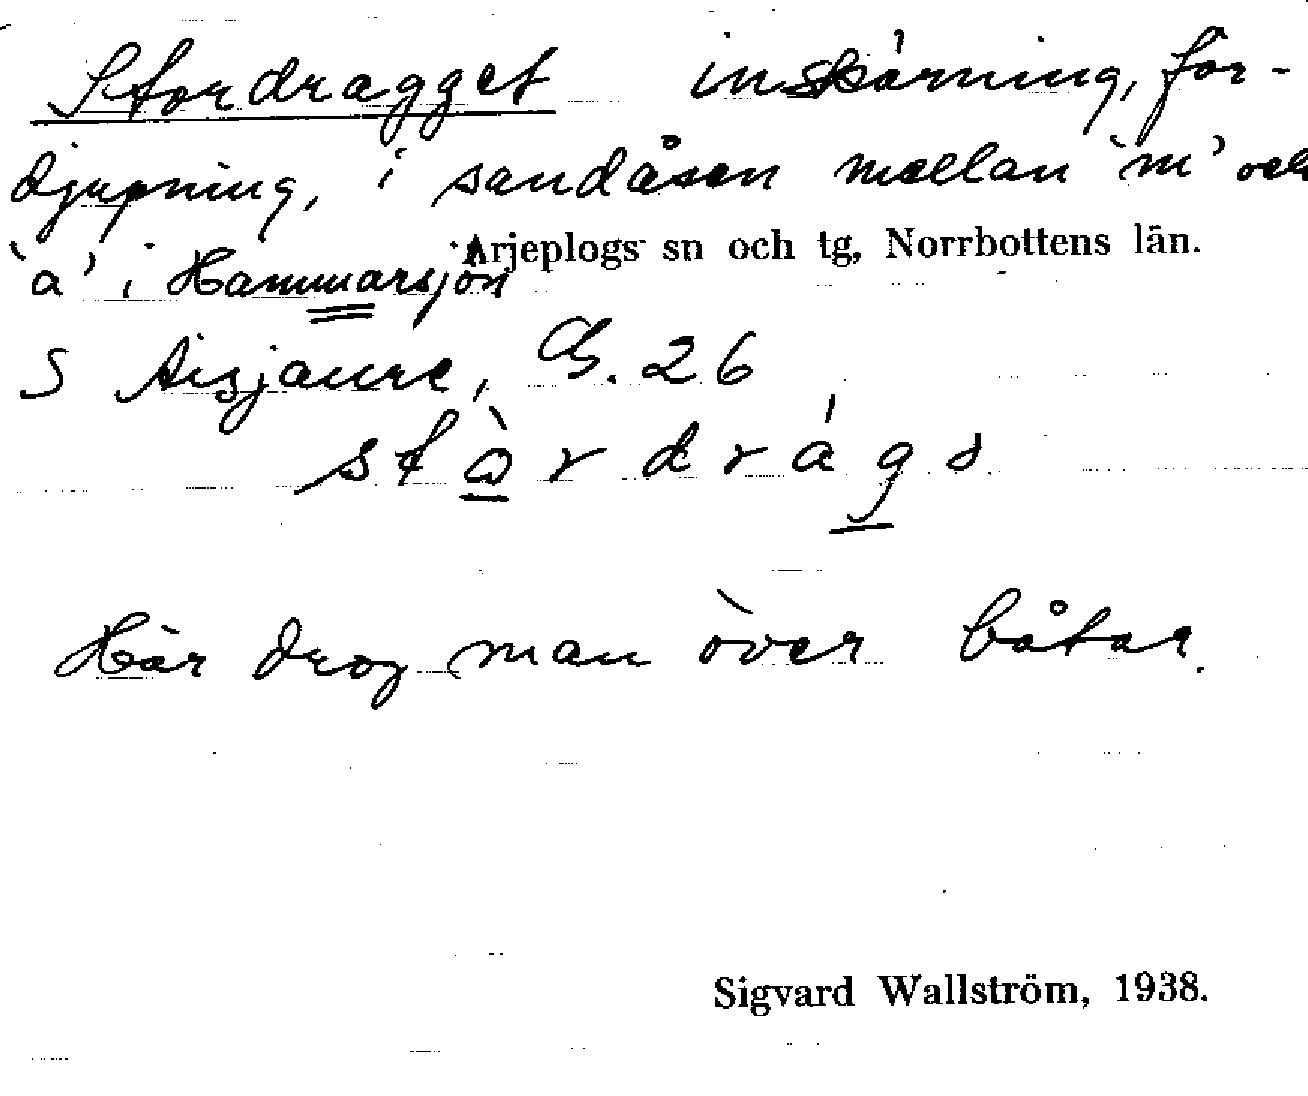 Stordragget inskärning, för-
djupning, i sandåsen mellan 'm' och
Arjeplogs sn och tg, Norrbottens län.
'a' i Hammarsjön
S Aisjaure, G. 26
Här drog man över båtar.
Sigvard Wallström, 1938.